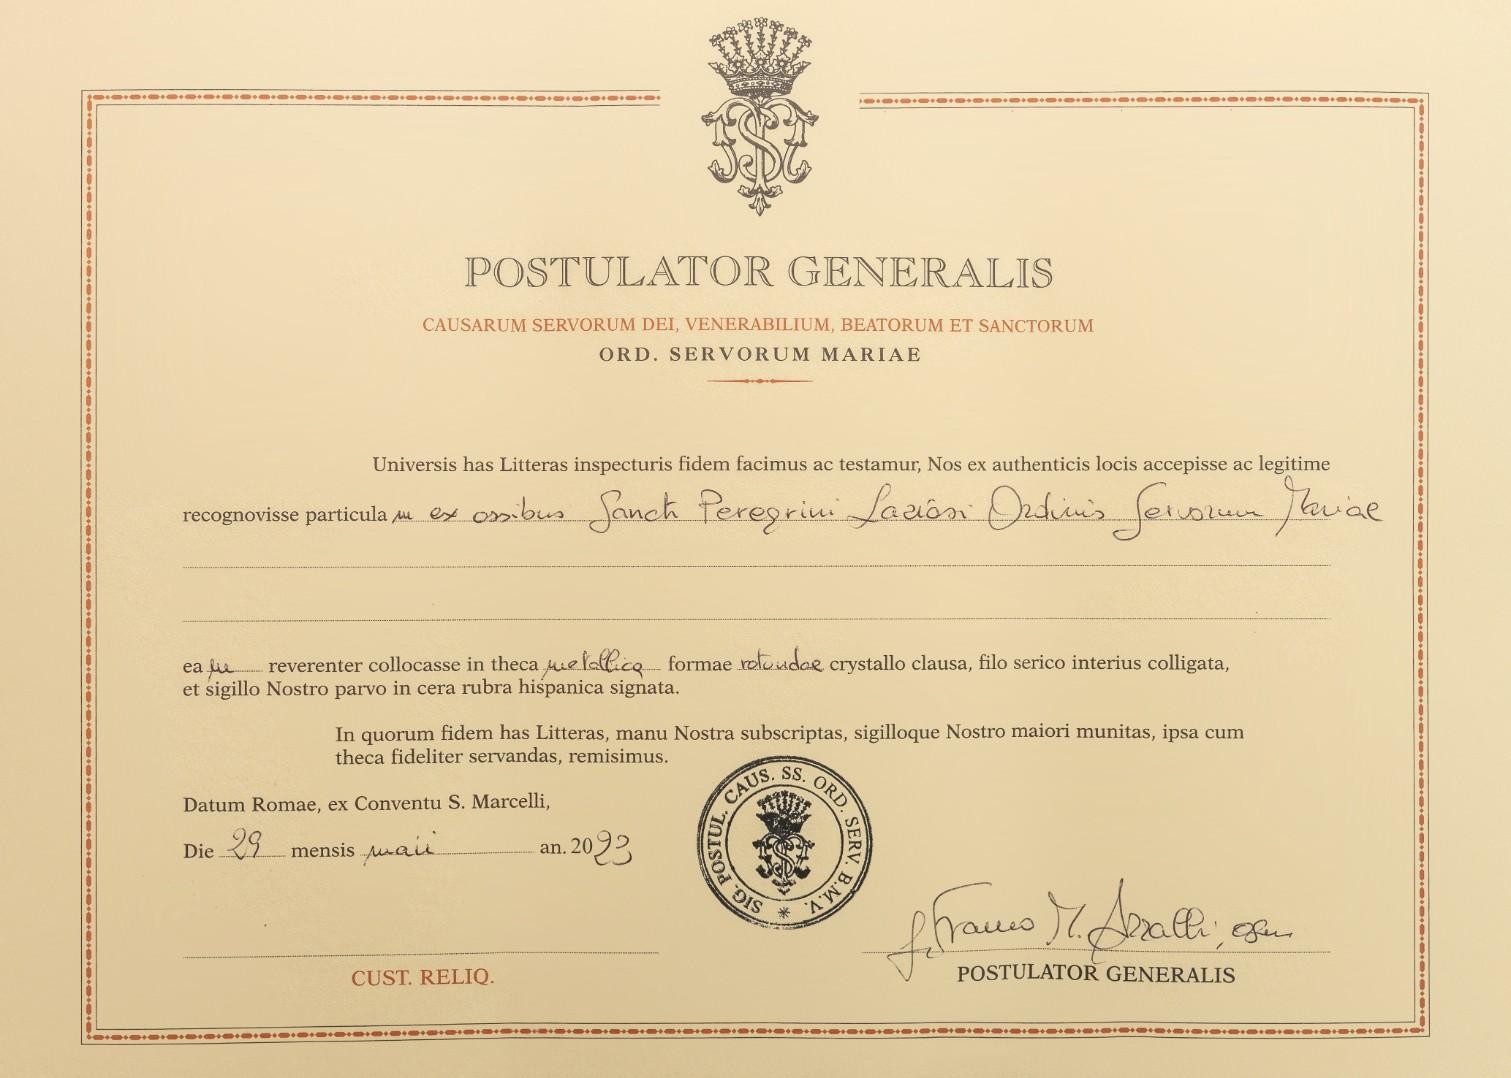 POSTULATOR GENERALIS
CAUSARUM SERVORUM DEI, VENERABILIUM, BEATORUM ET SANCTORUM
ORD. SERVORUM MARIAE
Universis has Litteras inspecturis fidem facimus ac testamur, Nos ex authenticis locis accepisse ac legitime
recognovisse particulam ex ossibus Sancti Peregrini Laziosi Ordinis Servorum Mariae
eam reverenter collocasse in theca metallica formae rotundae crystallo clausa, filo serico interius colligata,
et sigillo Nostro parvo in cera rubra hispanica signata.
In quorum fidem has Litteras, manu Nostra subscriptas, sigilloque Nostro maiori munitas, ipsa cum
theca fideliter servandas, remisimus.
SIG. POSTUL. CAUS. SS. ORD. SERV. B.M.V.
Datum Romae, ex Conventu S. Marcelli,
Die 29 mensis maii an. 2023
fr Franco M. Azzalli, osm
CUST. RELIQ.
POSTULATOR GENERALIS